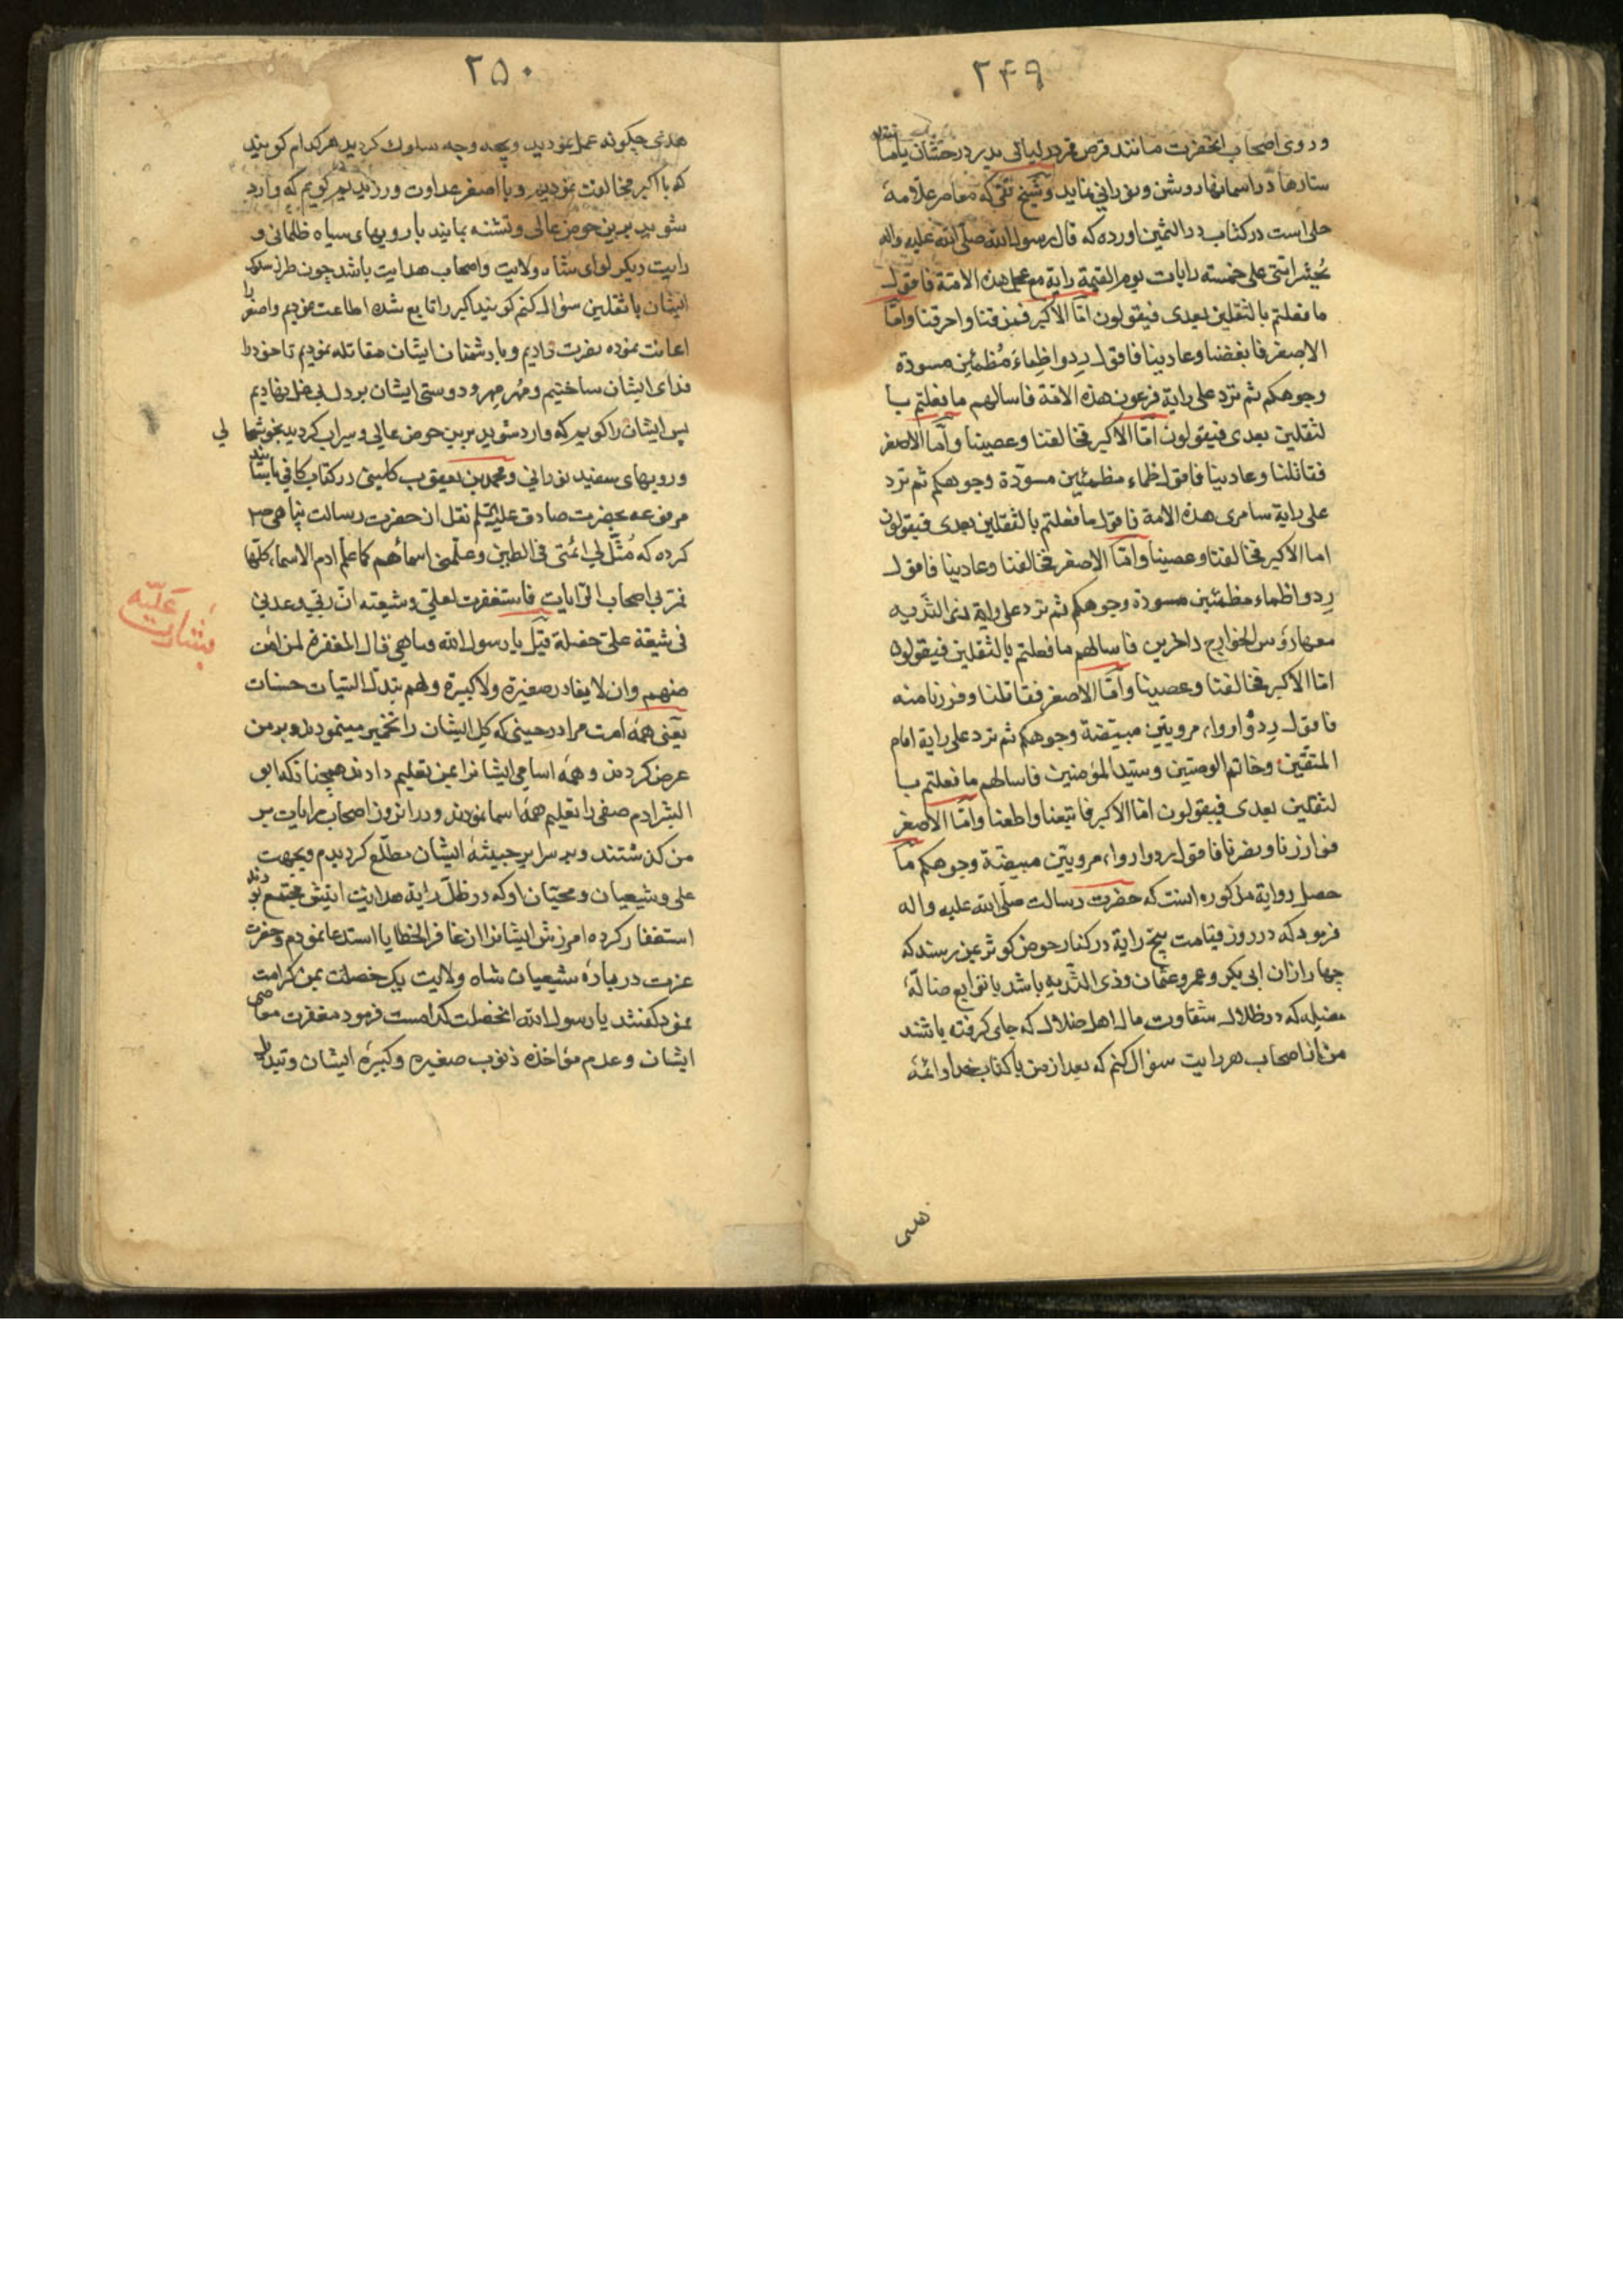 ۲۴۹
و روی اصحاب انحضرت مانند قرص قمر در لیالی بدر درخشان یا مانند
ستارها در اسمانها روشن و نورانی نماید و شیخ تقی که معاصر علامهٔ
حلی است در کتاب در الثمین اورده که قال رسول الله صلی الله علیه واله
یُحشر امتی علی خمسته رایات یوم القیمة رایة مع عجل هذه الامة فاقول
ما فعلتم بالثقلین بعدی فیقولون امّا الاکبر فمزقنا واحرقنا وامّا
الاصغر فابغضنا وعادینا فاقول رِدوا ظِماءً مُظمئین مسودة
وجوهکم ثم ترد علی رایة فرعون هذه الامة فاسالهم ما فعلتم با
لثقلین بعدی فیقولون امّا الاکبر فخالفنا وعصینا وامّا الاصغر
فقاتلنا وعادینا فاقول ظماء مظمئین مسوّدة وجوهکم ثم ترد
علی رایة سامری هذه الامة فاقول ما فعلتم بالثقلین بعدی فیقولون
اما الاکبر فخالفنا وعصینا وامّا الاصغر فخالفنا وعادینا فاقول
رِدوا ظماء مظمئین مسودة وجوهکم ثم ترد علی رایة ذی الثدیه
معها رؤس الخوارج داخرین فاسالهم ما فعلتم بالثقلین فیقولون
امّا الاکبر فخالفنا وعصینا وامّا الاصغر فقاتلنا وفررنا منه
فاقول رِدوُا رواء مرویین مبیضة وجوهکم ثم ترد علی رایة امام
المتقین وخاتم الوصیین وسید المؤمنین فاسالهم ما فعلتم با
لثقلین بعدی فیقولون امّا الاکبر فاتبعنا واطعنا وامّا الاصغر
فوازرنا ونصرنا فاقول ردوا رواء مرویین مبیضة وجوهکم ما
حصل روایة مذکوره انست که حضرت رسالت صلی الله علیه واله
فرمود که در روز قیامت پنج رایة در کنار حوض کوثر بمن رسند که
چهار ازان ابی بکر وعمر وعثمان وذی الثدیه باشد با توابع ضالّهٔ
مضله که در ظلال شقاوت مال اهل ضلال که جای کرفته باشند
من از اصحاب هر رایت سؤال کنم که بعد از من با کتاب خدا وائمهٔ
هدی
۲۵۰
هدی چکونه عمل نمودید و بچه وجه سلوک کردید هر کدام کویند
که با اکبر مخالفت نمودیم و با اصغر عداوت ورزیدیم کویم که وارد
شوید برین حوض عالی و تشنه بمانید با رویهای سیاه ظلمانی و
رایت دیکر لوای شاه ولایت واصحاب هدایت باشد چون طرز سلوک
ایشان با ثقلین سؤال کنم کویند اکبر را تابع شده اطاعت نمودیم واصغر را
اعانت نموده نصرت دادیم و با دشمنان ایشان مقاتله نمودیم تا خود را
فدای ایشان ساختیم و مُهر مِهر و دوستی ایشان بر دل بی غل نهادیم
پس ایشان را کویم که وارد شوید برین حوض عالی وسیراب کردید بخوشحا لی
و رویهای سفید نورانی و محمد بن یعقوب کلینی در کتاب کافی باسناد
مرفوعه بحضرت صادق علیه السلم نقل از حضرت رسالت پناهی ص
کرده که مُثّل لی امّتی فی الطین وعلّمنی اسمائهم کما علّم ادم الاسماء کلّها
ثمر بی اصحاب الرایات فاستغفرت لعلی وشیعته انّ ربّی وعدنی
فی شیعة علی خصلة قیل یا رسول الله وما هی قال المغفرة لمن امن
منهم وان لا یغادر صغیرة ولا کبیرة ولهم تبدل السیئات حسنات
یعنی همهٔ امت مرا در حینی که کل ایشان را تخمیر مینمودند و بر من
عرض کردند و همهٔ اسامی ایشان را بمن تعلیم دادند همچنانکه ابو
البشر ادم صفی را تعلیم همهٔ اسما نمودند و در انروز اصحاب رایات بر
من کذشتند و بر سرایر خبیثهٔ ایشان مطلع کردیدم و بجهت
علی و شیعیان و محبّان او که در ظلّ رایة هدایت ایتش مجتمع بودند
استغفار کرده امرزش ایشانرا از غافر الخطایا استدعا نمودم و حضرت
عزت دربارهٔ شیعیان شاه ولایت یک خصلت بمن کرامت
نمود کفتند یا رسول الله انخصلت کدامست فرمود مغفرت معاصی
ایشان و عدم مؤاخذهٔ ذنوب صغیره و کبیرهٔ ایشان و تبدیل
بشارت عَلیّه